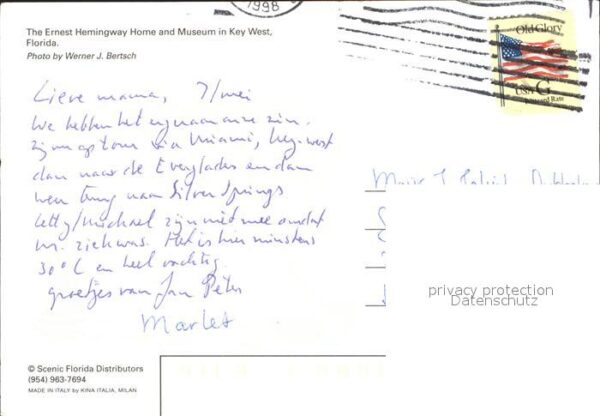 1998
The Ernest Hemingway Home and Museum in Key West,
Florida.
Photo by Werner J. Bertsch
Old Glory
USA G
Lieve mama, 7/mei
We hebben het erg naar onze zin.
Zijn op tour via Miami, Key-west
dan naar de Everglades en dan
weer terug naar Silver Springs
Letty/Michael zijn niet mee omdat
M. ziek was. Het is hier minstens
30°C en heel vochtig.
groetjes van Jan Peter
Marlet
privacy protection
Datenschutz
© Scenic Florida Distributors
(954) 963-7694
MADE IN ITALY by KINA ITALIA, MILAN